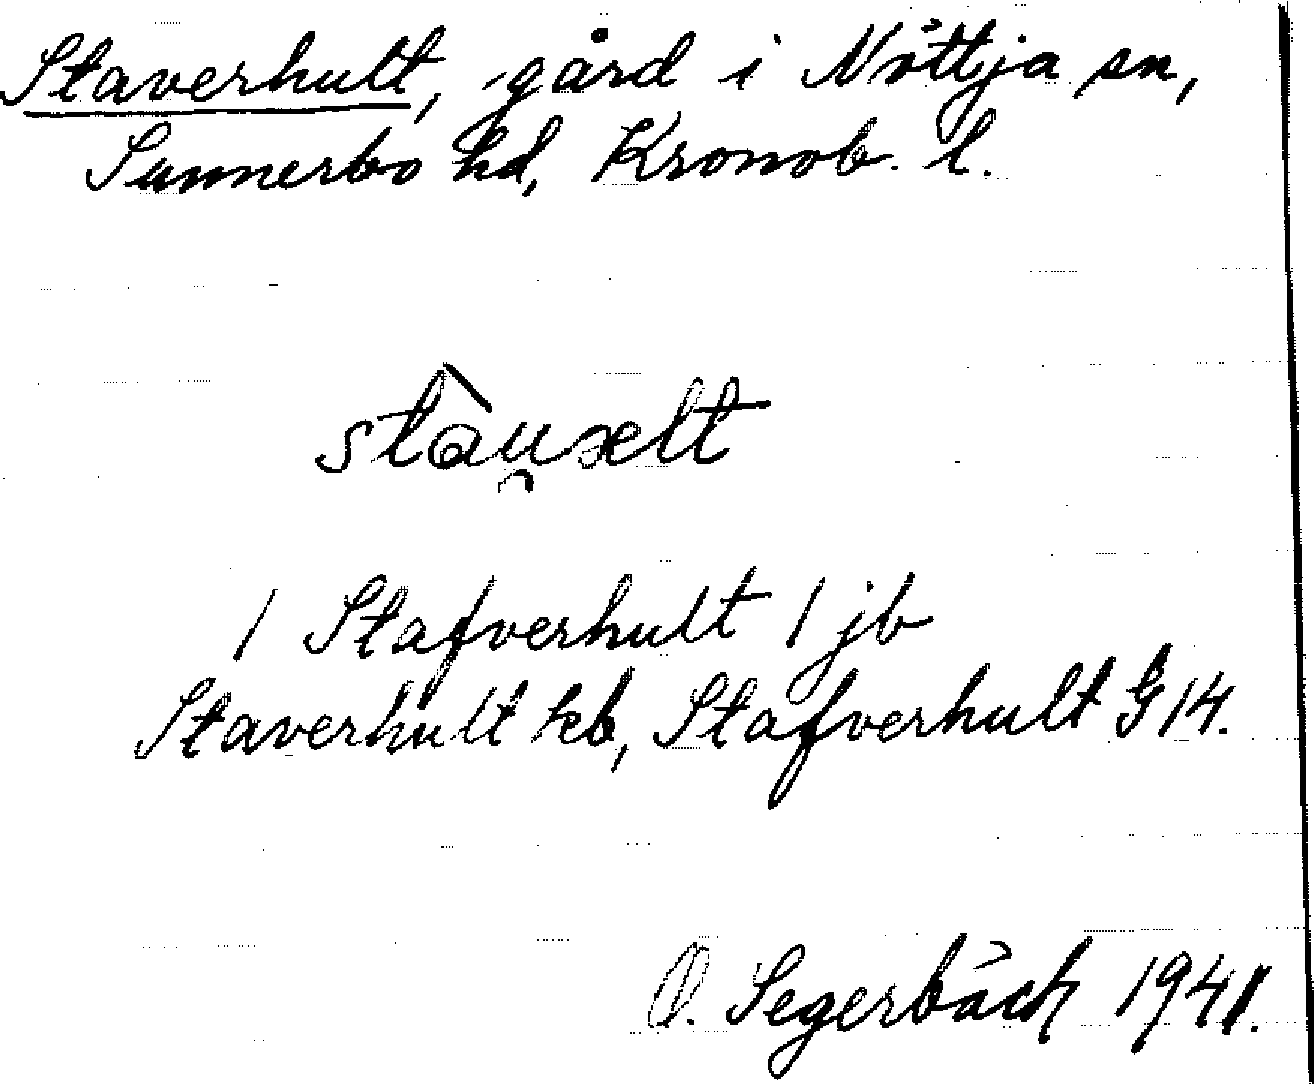 Staverhult, gård i Nöttja sn,
Sunnerbo hd, Kronob. l.
stàu̯xelt
1 Stafverhult 1 jb
Staverhult kb, Stafverhult G 14.
O. Segerbäck 1941.